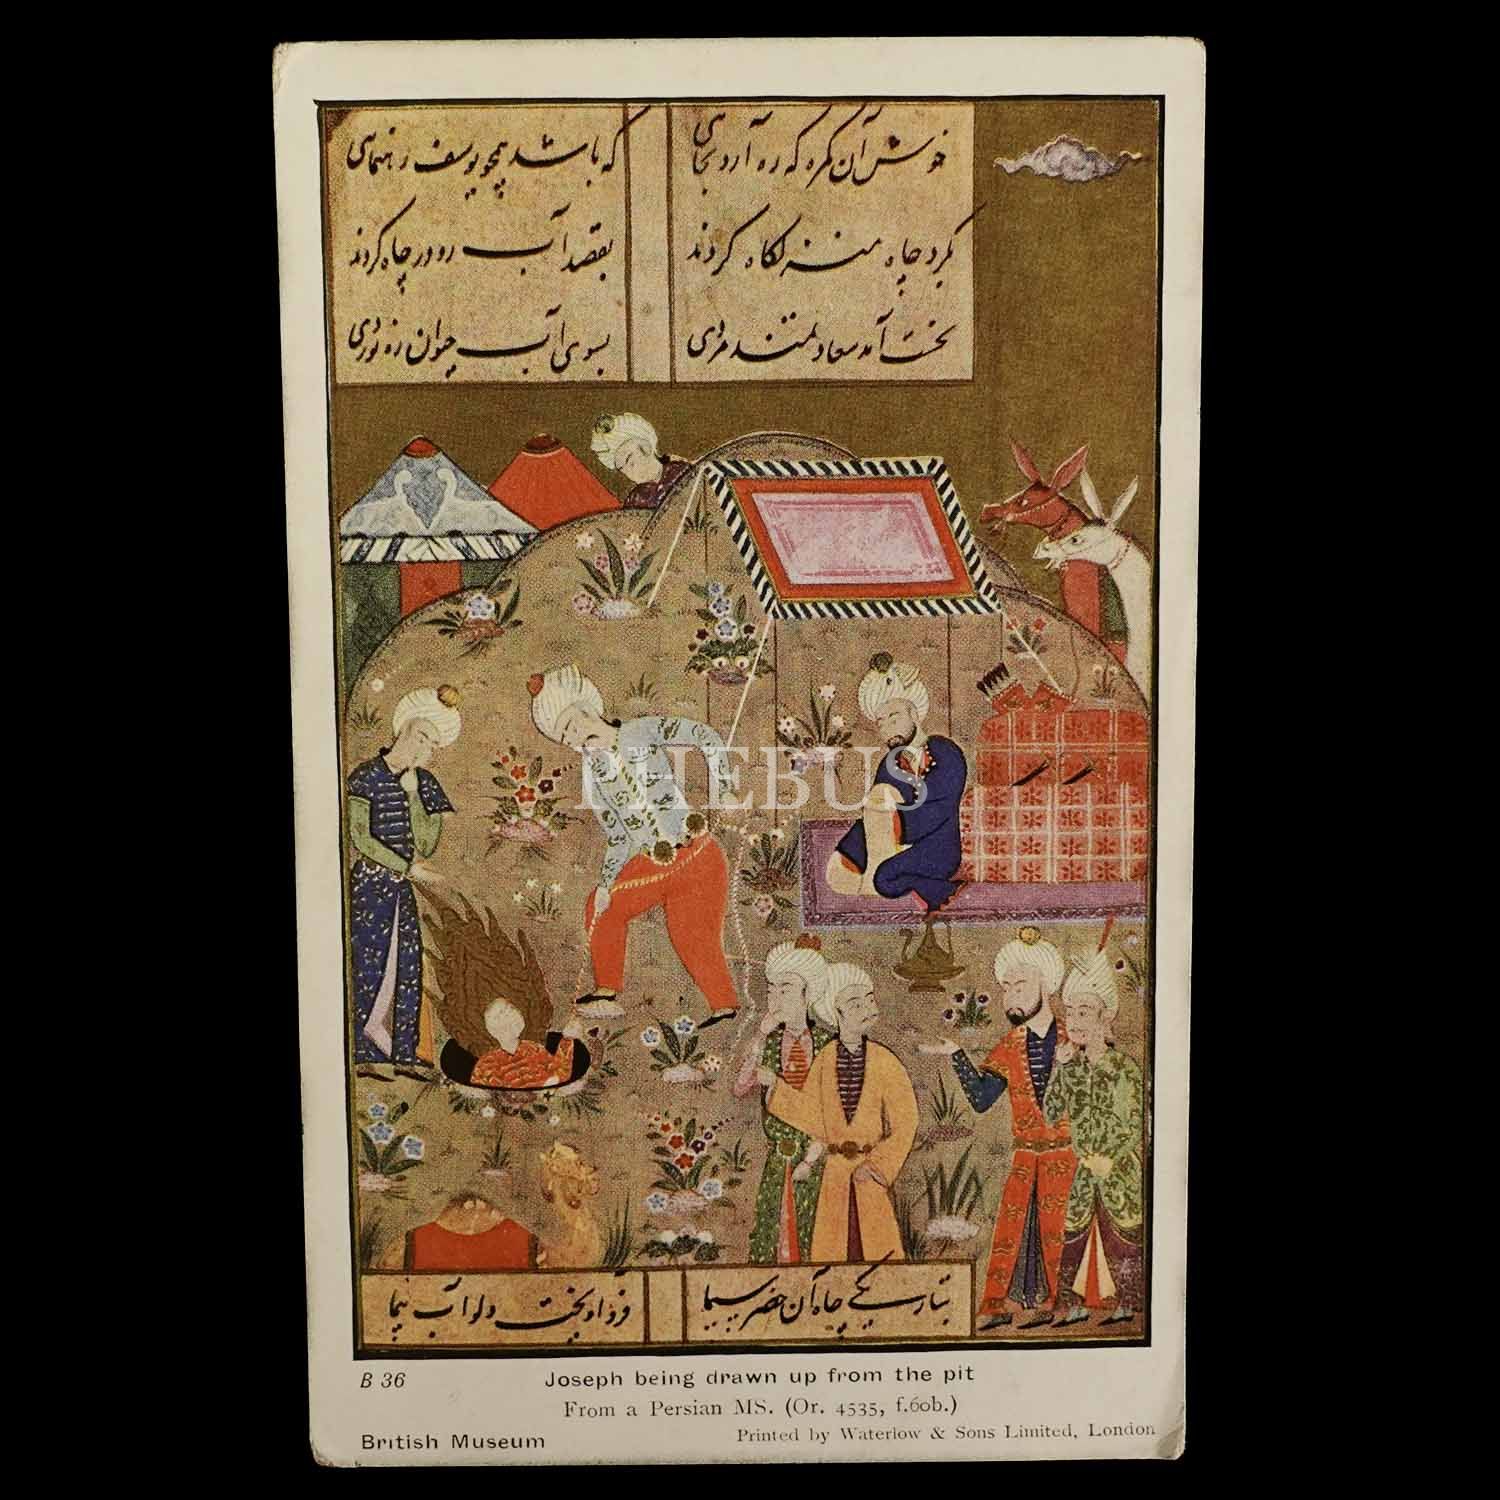 خوش آن گمره که ره آرد بجایی که باشد همچو یوسف رهنمایی
بگرد چاه منزلگاه کردند بقصد آب رو در چاه کردند
نخست آمد سعادتمند مردی بسوی آب حیوان ره نوردی
PHEBUS
بتاریکی چاه آن خضر سیما فرو آویخت دلو آب پیما
B 36
Joseph being drawn up from the pit
From a Persian MS. (Or. 4535, f.60b.)
British Museum
Printed by Waterlow & Sons Limited, London